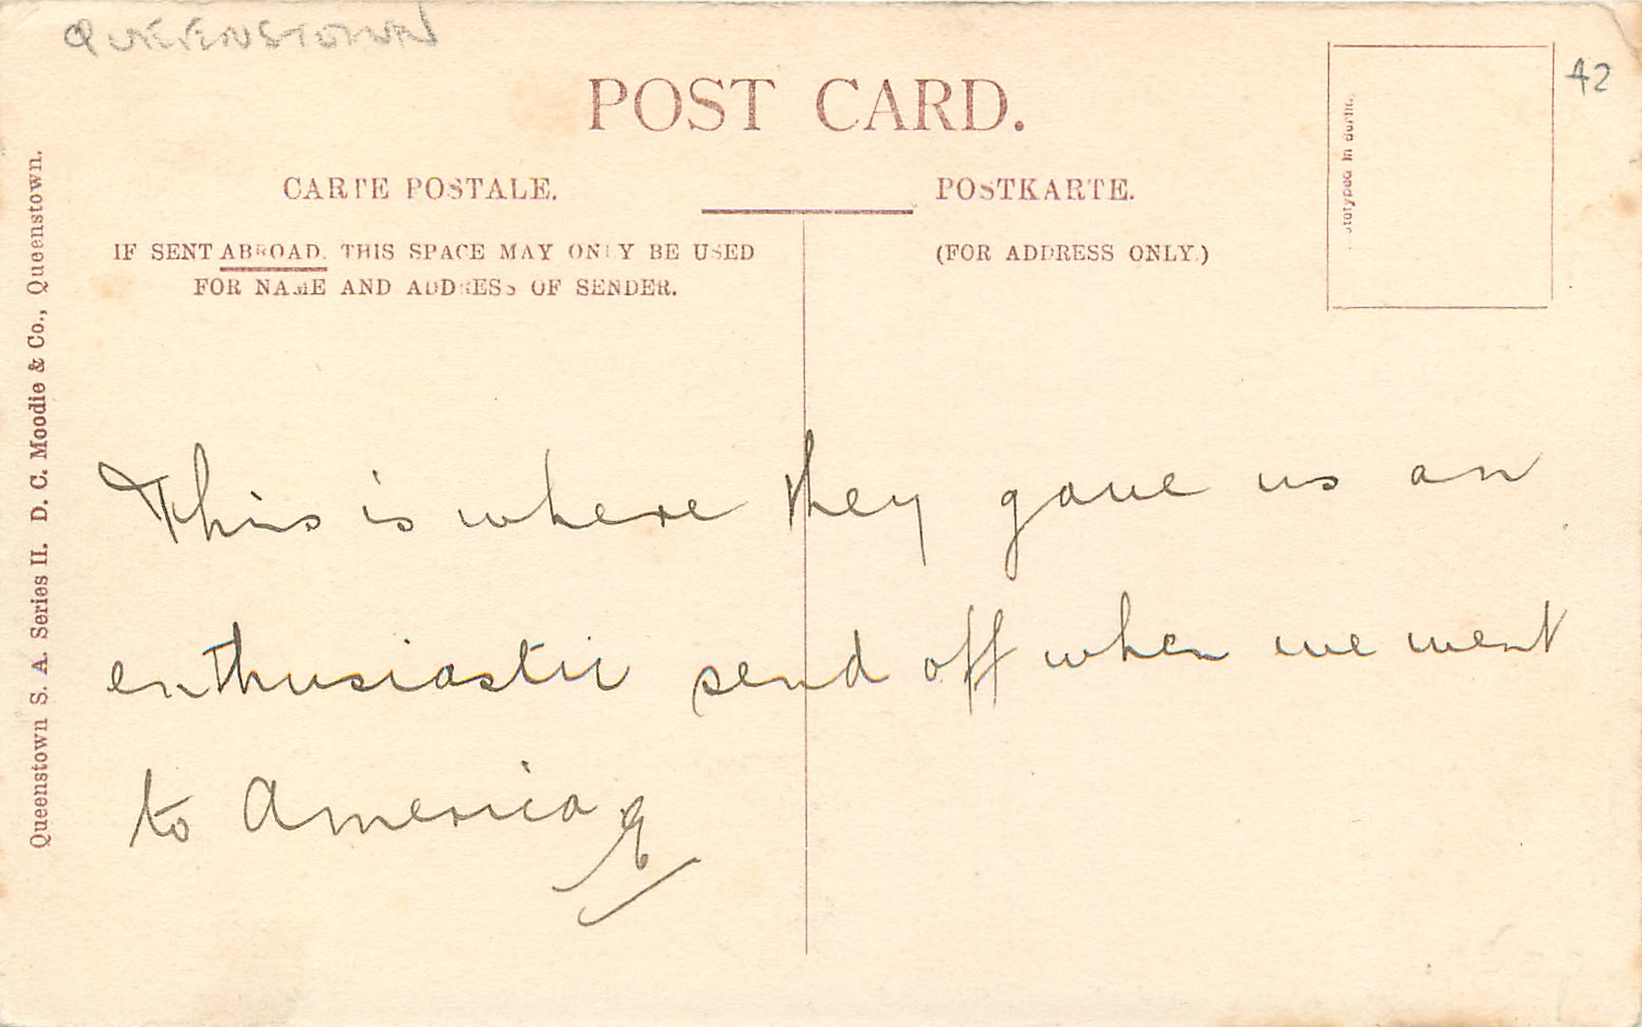 QUEENSTOWN
42
POST CARD.
CARTE POSTALE.
POSTKARTE.
IF SENT ABROAD. THIS SPACE MAY ONLY BE USED
FOR NAME AND ADDRESS OF SENDER.
(FOR ADDRESS ONLY.)
Queenstown S. A. Series II. D. C. Moodie & Co., Queenstown.
This is where they gave us an
enthusiastic send off when we went
to America